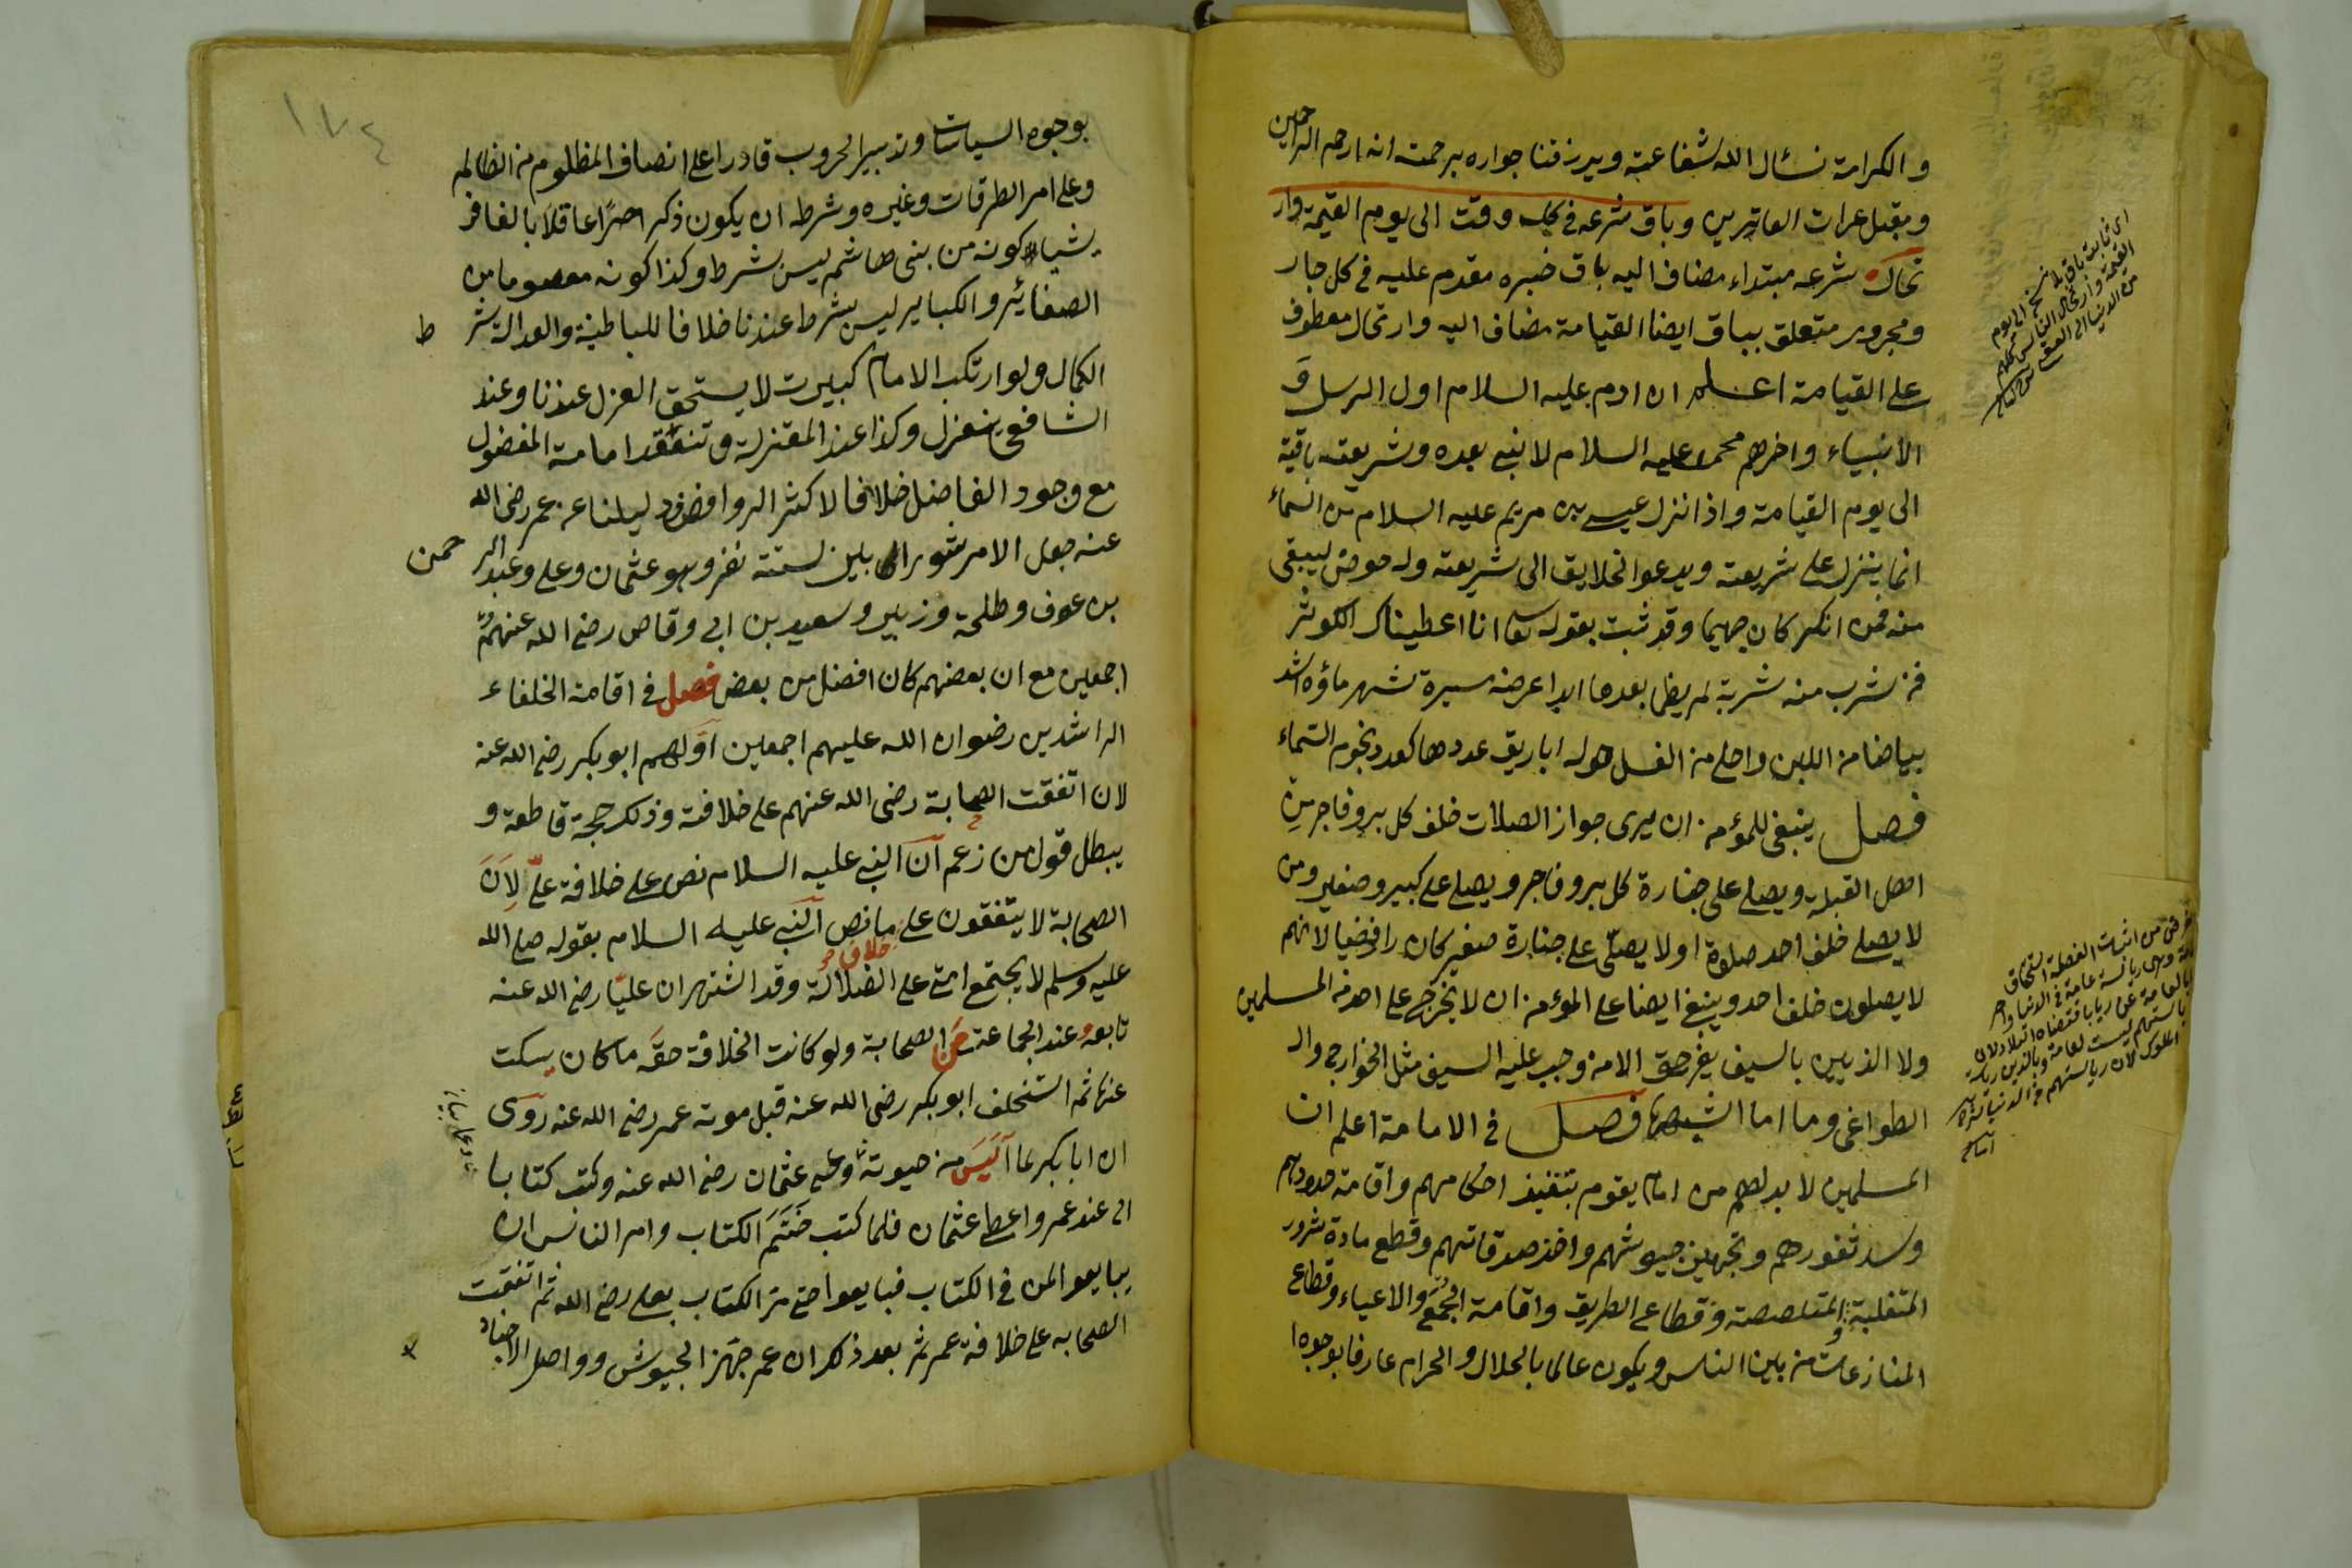 والكرامة نسئال الله شفاعته ويرزقنا جواره برحمته انه ارحم الراحمين
ويقبل عرات العاثرين وباق شرعه في كل وقت الى يوم القيمة وار
تحال شرعه مبتداء مضاف اليه باق خبره مقدم عليه في كل جار
ومجرور متعلق بباق ايضا القيامة مضاف اليه وارتحال معطوف
على القيامة اعلم ان ادم عليه السلام اول الرسل و
الانبياء واخرهم محمد عليه السلام لا نبي بعده وشريعته باقية
الى يوم القيامة واذا نزل عيسى بن مريم عليه السلام من السماء
انما ينزل على شريعته ويدعوا الخلايق الى شريعته وله حوض ليبقى
منه فمن انكر كان جهيما وقد ثبت بقوله تعا انا اعطيناك الكوثر
فمن شرب منه شربة لم يظما بعدها ابدا عرضه مسيرة شهر ماؤه اشد
بياضا من اللبن واحلى من العسل حوله اباريق عددها كعدد نجوم السماء
فصل ينبغي للمؤمن ان يرى جواز الصلات خلف كل بر وفاجر من
اهل القبلة ويصلي على جنازة كل بر وفاجر ويصلي على كبير وصغير ومن
لا يصلي خلف احد صلوة او لا يصلي على جنازة صغير كان رافضيا لانهم
لا يصلون خلف احد وينبغي ايضا على المؤمن ان لا يخرج على احد من المسلمين
ولا الذيين بالسيف بغير حق الا من وجب عليه السيف مثل الخوارج وال
الطواغي وما اما اشبهها فصل في الامامة اعلم ان
المسلمين لا بد لهم من امام يقوم بتنفيذ احكامهم واقامة حدودهم
وسد ثغورهم وتجهيز جيوشهم واخذ صدقاتهم وقطع مادة شرور
المتغلبة المتلصصة وقطاع الطريق واقامة الجمع والاعياد وقطاع
المنازعات من بين الناس ويكون عالما بالحلال والحرام عارفا بوجوه
اى ثابت باق بلا نسخ الى يوم
القيمة وارتحال الناس كلهم
من الدنيا الى العقبى
١٧٤
بوجوه السياسات وتدبير الحروب قادرا على انصاف المظلوم من الظالم
وعلى امر الطرقات وغيره وشرط ان يكون ذكرا حرا عاقلا بالغا قر
يشيا كونه من بنى هاشم ليس بشرط وكذا كونه معصوما من
الصغائر والكباير ليس بشرط عندنا خلافا للباطنية والعدالة شر ط
الكمال ولو ارتكب الامام كبيرت لا يستحق العزل عندنا وعند
الشافعي ينعزل وكذا عند المعتزلة وتنعقد امامة المفضول
مع وجود الفاضل خلافا لاكثر الروافض ودليلنا عن عمر رضى الله
عنه جعل الامر شورا بين ستة نفر وهو عثمان وعلي وعبد الرحمن
بن عوف وطلحة وزبير وسعيد بن ابى وقاص رضى الله عنهم
اجمعين مع ان بعضهم كان افضل من بعض فصل في اقامة الخلفاء
الراشدين رضوان الله عليهم اجمعين اولهم ابو بكر رضى الله عنه
لان اتفقت الصحابة رضى الله عنهم على خلافته وذلك حجة قاطعة و
يبطل قول من زعم ان النبى عليه السلام نص على خلافة علي لان
الصحابة لا يتفقون على خلاف ما نص النبى عليه السلام بقوله صلى الله
عليه وسلم لا يجتمع امتى على الضلالة وقد اشتهر ان عليا رضى الله عنه
تابعه عند الجماعة من الصحابة ولو كانت الخلافة حقه ما كان يسكت
عنها ثم استخلف ابو بكر رضى الله عنه قبل موته عمر رضى الله عنه روى
ان ابا بكر لما ايس من حيوته وعى عثمان رضى الله عنه وكتب كتابا
الى عند عمر واعطى عثمان فلما كتب ختم الكتاب وامر الناس ان
يبايعوا لمن في الكتاب فبايعوا حتى مر الكتاب بعلى رضى الله ثم اتفقت
الصحابه على خلافة عمر ثم بعد ذكر ان عمر جهز الجيوش وواصل الاجناد